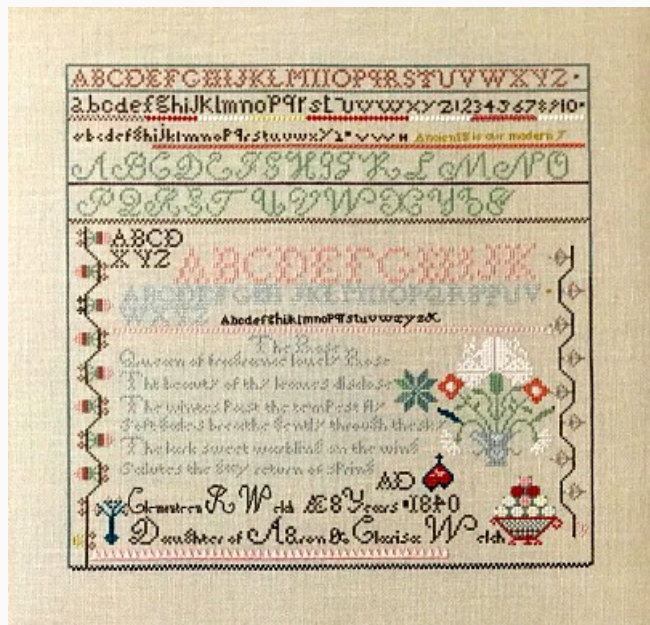 ABCDEFGHIJKLMNOPQRSTUVWXYZ
abcdefghiJklmnoPqrstuvwxyz12345678910
abcdefghiJklmnoPqrstuvwxyz
ABCDEFGHIJKLMNO
PQRSTUVWXYZ&
ABCD
XYZ
ABCDEFGHIJK
ABCDEFGHIJKLMNOPQRSTUV
WXYZ
AbcdefghiklmnoPqrstuvwxyz&
The Rose
Queen of fragrance lovely Rose
The beauty of thy leaves disclose
The winters Past the temPest fly
Soft Gales breathe Gently through the sky
The lark sweet warbling on the wing
Salutes the Gay return of sPring
AD
R Welch Æ 8 Years 1840
Daughter of Aaron & Clarisa Welch